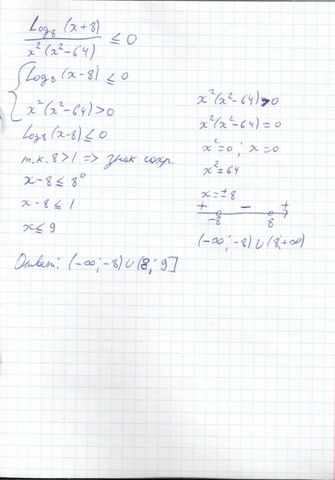 Log₈ (x+8)
x²(x²-64) ≤ 0
Log₈ (x-8) ≤ 0
x²(x²-64) > 0
Log₈ (x-8) ≤ 0
т.к. 8 > 1 => знак сохр.
x-8 ≤ 8⁰
x-8 ≤ 1
x ≤ 9
x²(x²-64) > 0
x²(x²-64) = 0
x²=0 ; x=0
x²=64
x=±8
+ - +
-8 8
(-∞;-8)∪(8;+∞)
Ответ: (-∞;-8)∪(8;9]